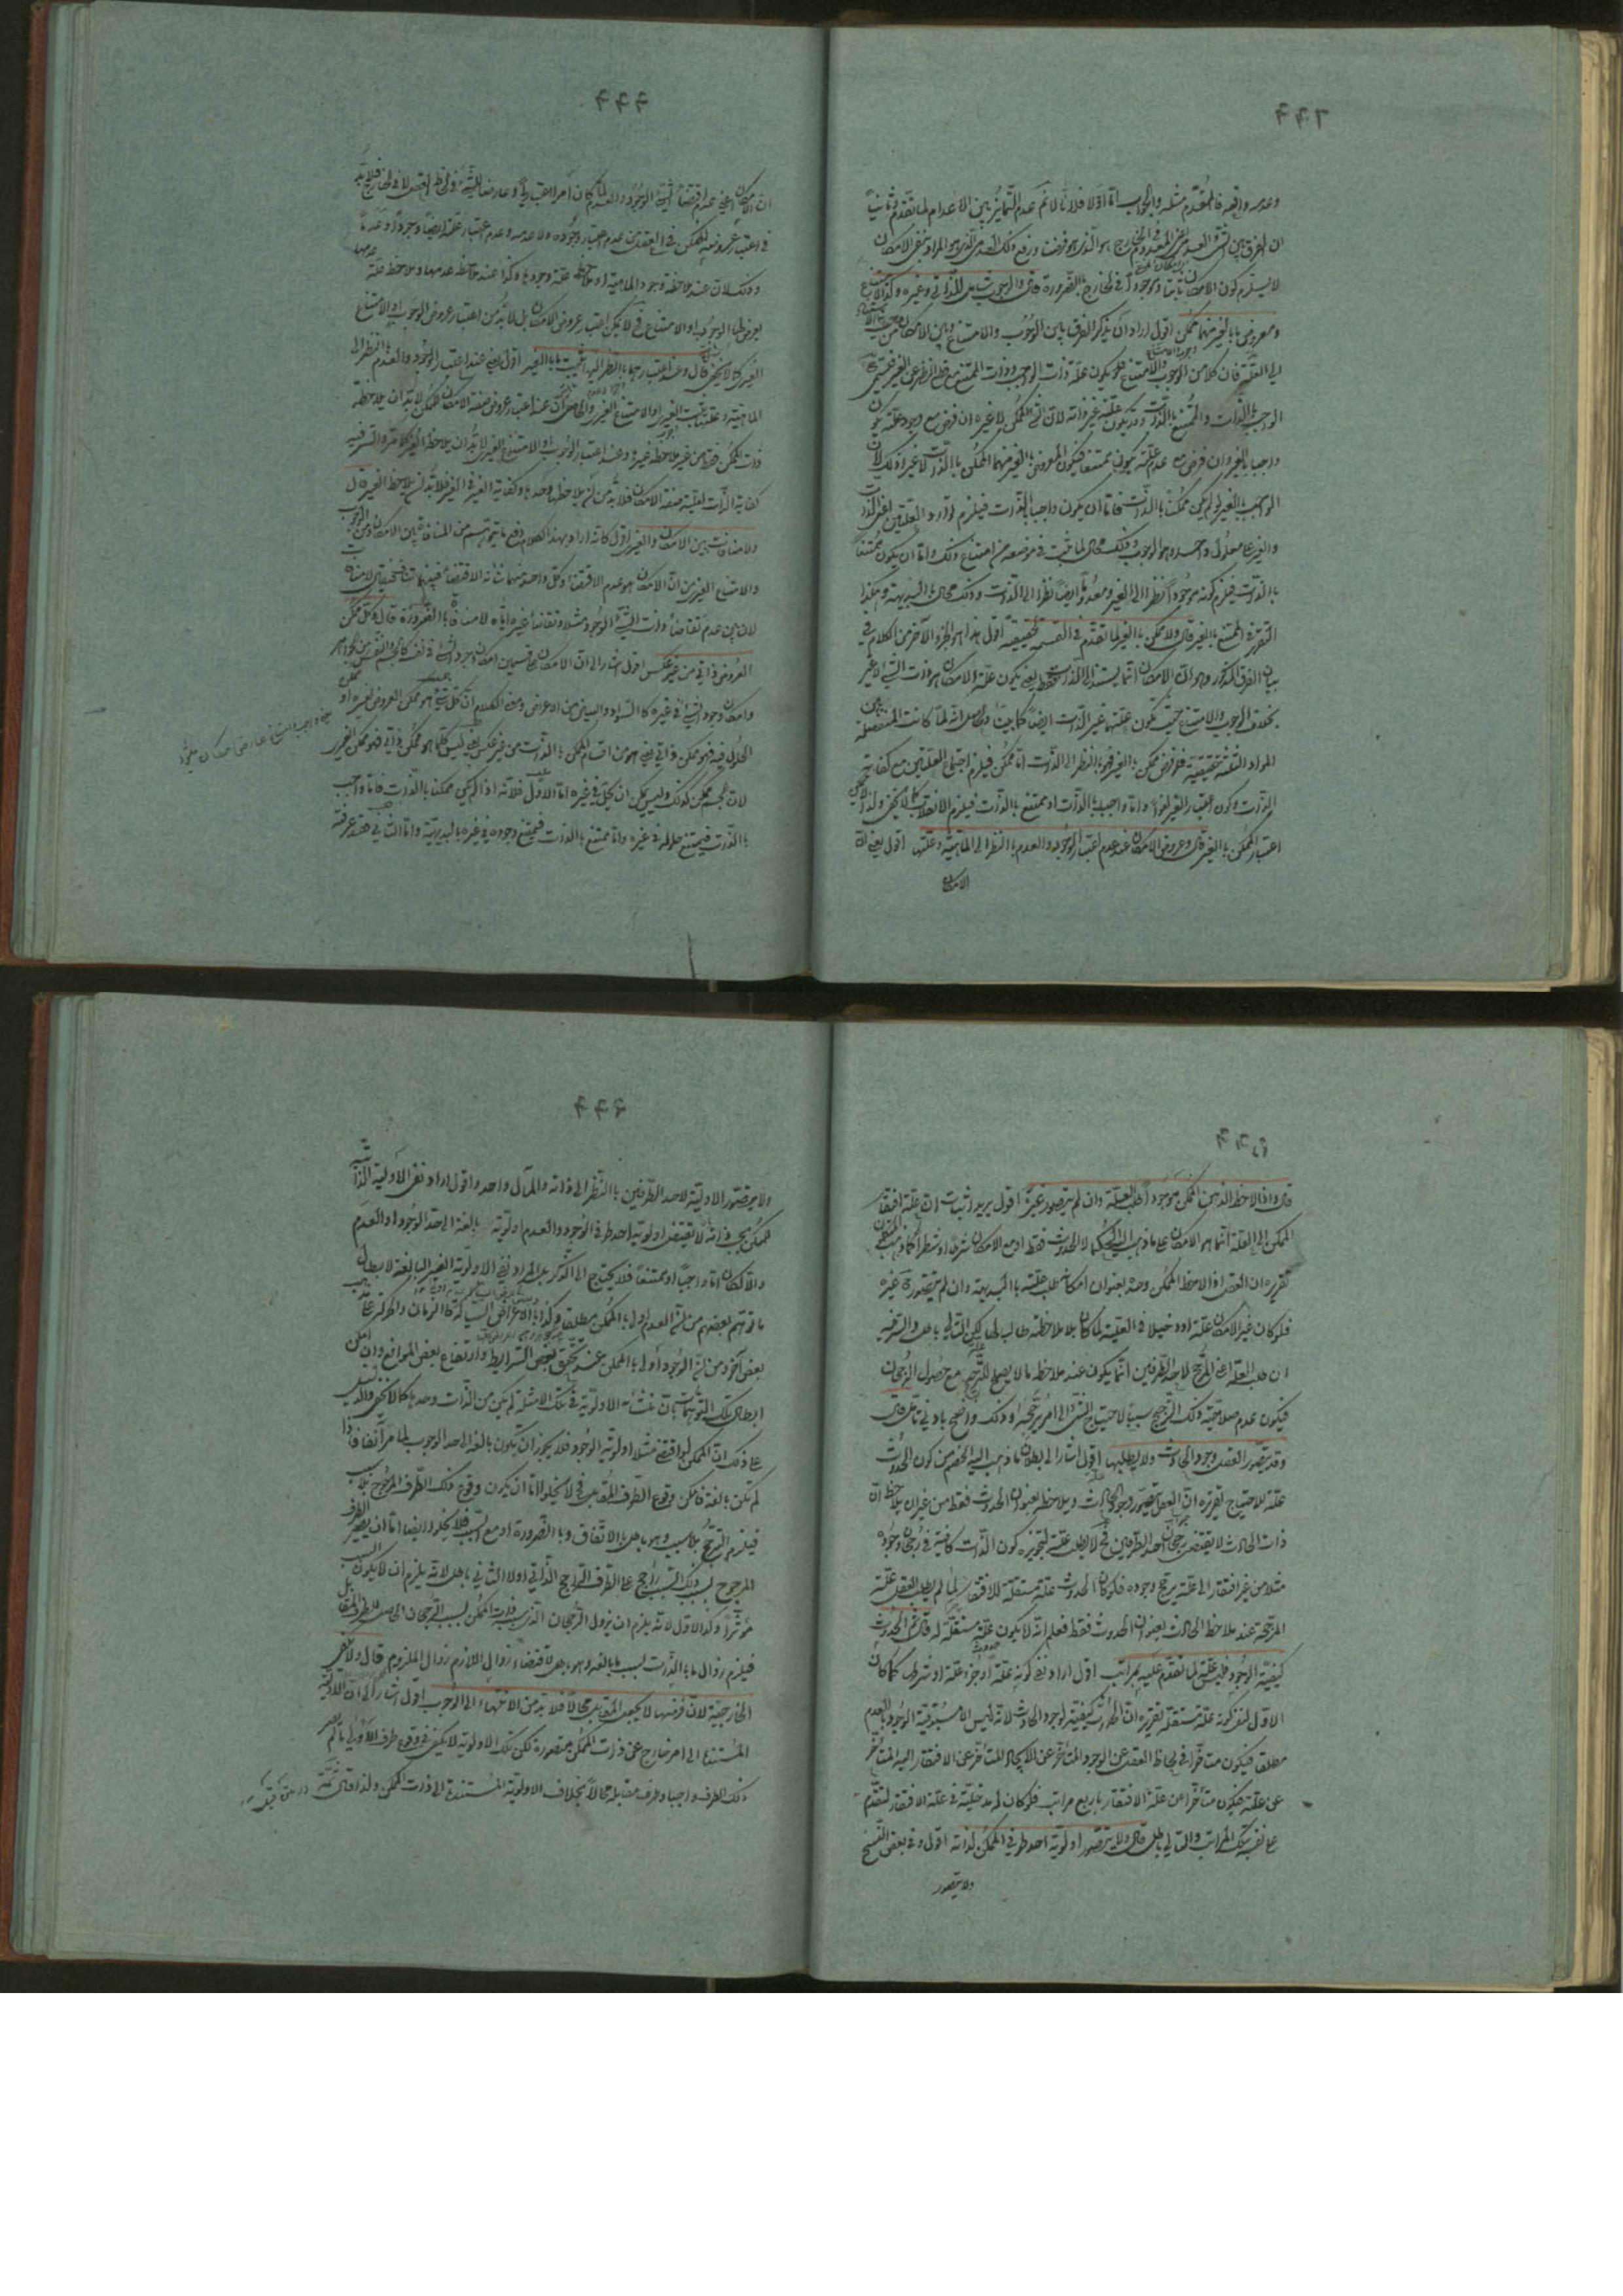 وعدمه واقع فالمقدم مثله والجواب اما اولا فلانا لا نم عدم التمايز بين الاعدام لما تقدم وثانيا
ان الفرق بين نفي
لا يستلزم كون الامكان ثابتا وموجودا في الخارج بالضرورة قال والوجوب شامل للذاتي وغيره وكذا الامتناع
ومعروض ما بالغير منهما ممكن اقول اراد ان يذكر الفرق بين الوجوب والامتناع وبين الامكان من
العلة فان كلا من الوجوب والامتناع قد يكون علته ذات الواجب وذات الممتنع مع قطع النظر عن الغير فيسمى
الواجب بالذات والممتنع بالذات وقد يكون علته غير ذاته لان الشئ الممكن لا غير ان فرض مع وجود علته يكون
واجبا بالغير وان فرض مع عدم علته يكون ممتنعا فيكون المعروض بالغير منهما الممكن بالذات لا غير وذلك لان
الواجب بالغير لو لم يكن ممكنا بالذات فاما ان يكون واجبا بالذات فيلزم توارد العلتين اعني الذات
والغير على معلول واحد وهو الوجوب وذلك محال لما ثبت في موضعه من امتناع ذلك واما ان يكون ممتنعا
بالذات فيلزم كونه موجودا نظرا الى الغير ومعدوما ايضا نظرا الى الذات وذلك محال بالبديهة وهكذا
التقرير في الممتنع بالغير قال ولا ممكن بالغير لما تقدم في القسمة الحقيقية اقول هذا هو الجزء الآخر من الكلام في
بيان الفرق المذكور وهو ان الامكان انما يستند الى الذات فقط يعني يكون علة الامكان هو ذات الشئ لا غير
بخلاف الوجوب والامتناع حيث تكون علتهما غير الذات ايضا كما بينا وحاصله انه لما كانت المنفصلة بين
المواد الثلثة حقيقية فلو فرض ممكن بالغير فهو بالنظر الى الذات اما ممكن فيلزم اجتماع العلتين مع كفاية
الذات وكون اعتبار الغير لغوا واما واجب بالذات او ممتنع بالذات فيلزم الانقلاب كما لا يخفى ولذا
اعتبار الممكن بالغير قال وعروض الامكان عند عدم اعتبار الوجود والعدم بالنظر الى الماهية وعلتها اقول يعني ان
الامكان
ان الامكان اعني عدم اقتضاء الشئ الوجود والعدم لما كان امرا اعتباريا وعارضا للشئ في لحاظ العقل لا في الخارج فلا بد
في اعتبار عروضه للممكن في العقل من عدم اعتبار وجوده ولا عدمه وعدم اعتبار علته ايضا وجودا وعدما
وذلك لان عند ملاحظة وجود الماهية او ملاحظة علة وجودها وكذا عند ملاحظة عدمها وملاحظة علة عدمها
يعرض لها الوجوب او الامتناع فلا يمكن اعتبار عروض الامكان بل لا بد من اعتبار عروض الوجوب او الامتناع
الغيري كما لا يخفى قال وعند اعتبارهما بالنظر اليها يثبت ما بالغير اقول يعني عند اعتبار الوجود والعدم بالنظر الى
الماهية وعلتها يثبت الوجوب الغيري او الامتناع الغيري والحاصل ان عند اعتبار عروض صفة الامكان للممكن لا بد ان يلاحظ
ذات الممكن فقط من غير ملاحظة غيره وعند اعتبار الوجوب او الامتناع الغيري لا بد ان يلاحظ الغير كما مر والسر فيه
كفاية الذات لعلية صفة الامكان فلا بد من ان يلاحظها وحدها وكفاية الغير في الغير فلا بد ان يلاحظ الغير قال
ولا منافاة بين الامكان والغيري اقول كانه اراد بهذا الكلام دفع ما يتوهم من المنافاة بين الامكان وبين الوجوب
والامتناع الغيري من ان الامكان هو عدم الاقتضاء وكل واحد منهما شانه الاقتضاء فبينهما تناف لا منافاة
لان بين عدم تقاضا ذات الشئ الوجود مثلا وتقاضا غيره اياه لا منافاة بالضرورة قال وكل ممكن
العروض ذاتي من غير عكس اقول اشار الى ان الامكان على قسمين امكان وجود الشئ في نفسه كالجسم والنفس
وامكان وجود الشئ في غيره كالسواد والبياض من الاعراض ومعنى الكلام ان كل شئ هو ممكن العروض لغيره او
الحلول فيه فهو ممكن ذاتي يعني هو من اقسام الممكن بالذات من غير عكس يعني ليس كلما هو ممكن ذاتي فهو ممكن لغيره
لان الجسم ممكن كذلك وليس يمكن ان يحل في غيره اما الاول فلانه اذا لم يكن ممكنا بالذات فاما واجب
بالذات فيمتنع حلوله في غيره واما ممتنع بالذات فيمتنع وجوده في غيره بالبديهة واما الثاني فقد عرفته
قال واذا لاحظ الذهن الممكن موجودا طلب العلة وان لم يتصور غيره اقول يريد اثبات ان علة افتقار
الممكن الى العلة انما هو الامكان على ما ذهب اليه الحكماء لا الحدوث فقط او مع الامكان شرطا او شطرا
تقريره ان العقل اذا لاحظ الممكن وحده بعنوان امكانه طلب علته بالبديهة وان لم يتصور غيره
فلو كان غير الامكان علة او دخيلا في العلية لما كان بلا ملاحظته طالب لها لكن التالي باطل والسر فيه
ان طلب العلة اعني المرجح لاحد الطرفين انما يكون عند ملاحظة ما لا يصلح للترجح مع حصول الرجحان
فيكون عدم صلاحية ذلك الترجيح سببا لاحتياج الشئ الى امر يرجحه وذلك واضح بادنى تأمل قال
وقد يتصور العقل وجود الحادث ولا يطلبها اقول اشار الى بطلان ما ذهب اليه الخصم من كون الحدوث
علة للاحتياج تقريره ان العقل يتصور وجود الحادث ويلاحظه بعنوان الحدوث فقط من غير ان يلاحظ ان
ذات الحادث لا يقتضي رجحان احد الطرفين فح لا يطلب علته لتجويزه كون الذات كافية في رجحان وجوده
مثلا من غير افتقار الى علة يرجح وجوده فلو كان الحدوث علة مستقلة للافتقار لما لم يطلب العقل علته
المرجحة عند ملاحظة الحادث بعنوان الحدوث فقط فعلم انه لا يكون علة مستقلة له قال ثم الحدوث
كيفية الوجود فليس علة لما تقدم عليه بمراتب اقول اراد نفي كونه علة او جزء علة او شرطها كما كان
الاول لنفي كونه علة مستقلة تقريره ان الحدوث كيفية لوجود الحادث لانه ليس الا مسبوقية الوجود بالعدم
مطلقا فيكون متاخرا في لحاظ العقل عن الوجود المتاخر عن الايجاد المتاخر عن الافتقار اليه المتاخر
عن علته فيكون متأخرا عن علة الافتقار باربع مراتب فلو كان له مدخلية في علة الافتقار لتقدم
على نفسه بتلك المراتب والتالي باطل قال ولا يتصور اولوية احد طرفي الممكن لذاته اقول وفي بعض النسخ
ولا يتصور
ولا يتصور الاولوية لاحد الطرفين بالنظر الى ذاته والمآل واحد واقول اراد نفي الاولية الذاتية
للممكن يعني ذاته لا يقتضي اولوية احد طرفي الوجود والعدم اولوية بالغة الى حد الوجود او العدم
والا لكان اما واجبا او ممتنعا فلا يحتاج الى الذكر بل المراد نفي الاولوية الغير البالغة لابطال
ما توهم بعضهم من ان العدم اولى بالممكن مطلقا وكذا بالاعراض السيالة كالزمان والحركة على
بعض آخر ومن ان الوجود اولى بالممكن عند تحقق بعض الشرايط وارتفاع بعض الموانع وان امكن
ابطال تلك التوهمات بان منشأ الاولوية في تلك الامثلة لم يكن من الذات وحدها كما لا يخفى والدليل
على ذلك ان الممكن لو اقتضى مثلا اولوية الوجود فلا يجوز ان يكون بالغا الى حد الوجوب لما مر آنفا فاذا
لم تكن بالغة فامكن وقوع الطرف المقابل فح لا يخلو اما ان يكون وقوع ذلك الطرف المرجوح بلا سبب
فيلزم الترجح بلا سبب وهو باطل بالاتفاق وبالضرورة او مع السبب فلا يخلو ايضا اما ان يصير الطرف
المرجوح بسبب ذلك السبب راجح على الطرف الراجح الذاتي او لا والثاني باطل لانه يلزم ان لا يكون السبب
مؤثرا وكذا الاول لانه يلزم ان يزول الرجحان الذي لذات الممكن بسبب الرجحان الحاصل للطرف المقابل
فيلزم زوال ما بالذات لسبب ما بالغير وهو باطل لاقتضاء زوال اللازم زوال الملزوم قال ولا يكفي
الخارجية لان فرضها لا يجعل المقابل محالا فلا بد من الانتهاء الى الوجوب اقول اشار الى ان الاولوية
المستندة الى امر خارج عن ذات الممكن متصورة لكن تلك الاولوية لا يكفي في وقوع طرف الاولى ما لم يصر
ذلك الطرف واجبا وطرف مقابله محالا بخلاف الاولوية المستندة الى ذات الممكن ولذا قال